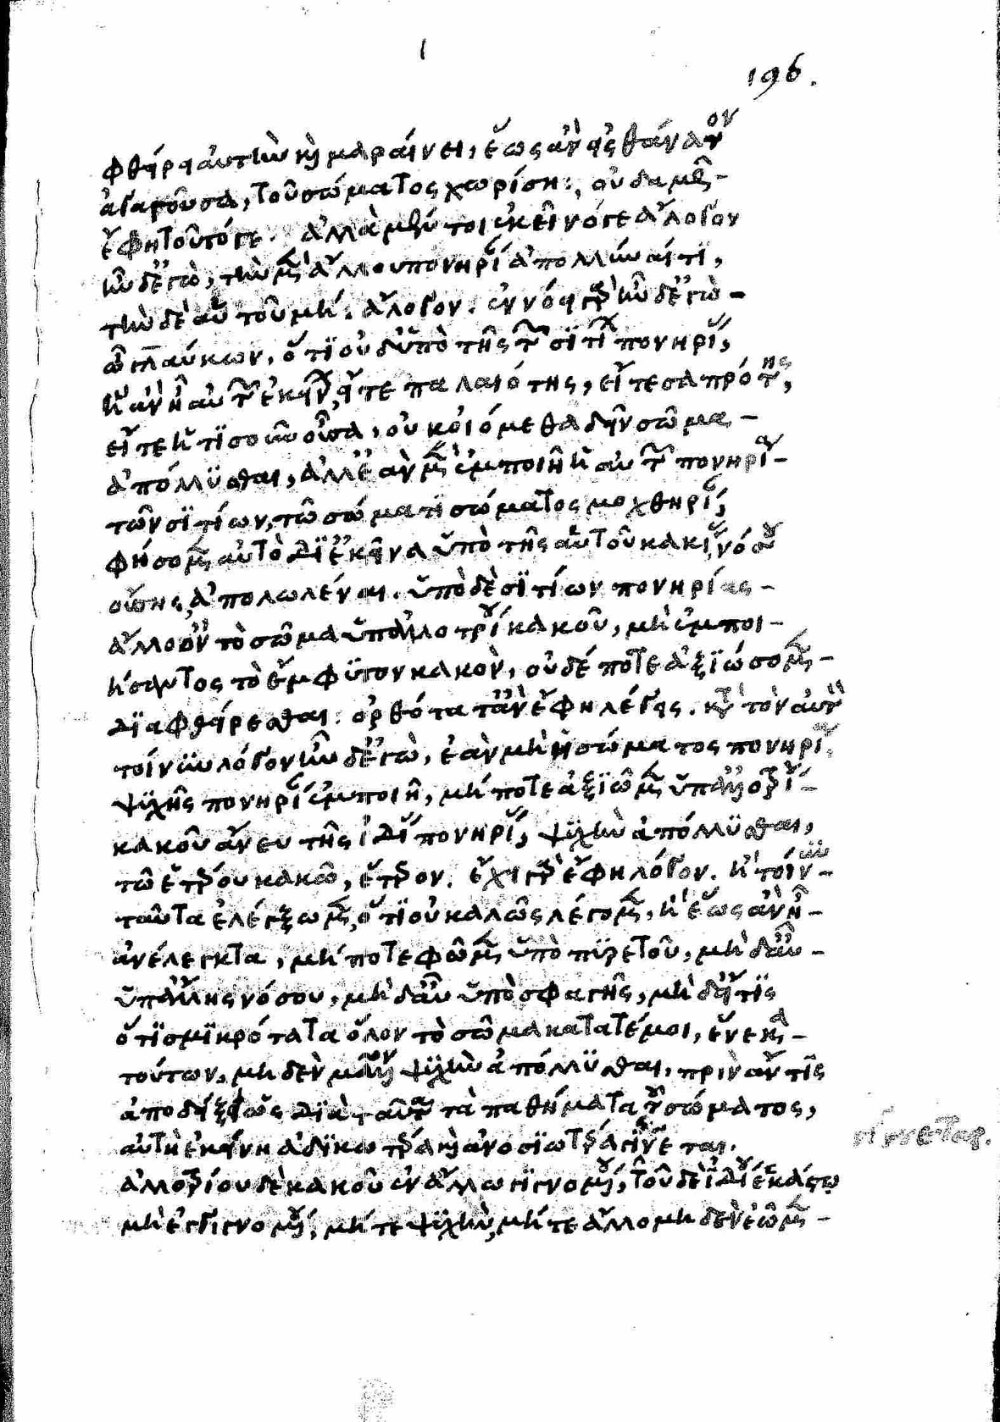 196.
φθείρει αὐτὴν καὶ μαραίνει, ἕως ἂν εἰς θάνατον
ἀγαγοῦσα, τοῦ σώματος χωρίσῃ; οὐδαμῶς
ἔφη τοῦτό γε. ἀλλὰ μέν τοι ἐκεῖνό γε ἄλογον
ἦν δ' ἐγὼ, τὴν μὲν ἄλλου πονηρίαν ἀπολλύναι τι,
τὴν δὲ αὑτοῦ μή. ἄλογον. ἐννόει γὰρ ἦν δ' ἐγὼ
ὦ γλαύκων, ὅτι οὐδ' ὑπὸ τῆς τῶν σιτίων πονηρίας,
ἣ ἂν ᾖ αὐτῶν ἐκείνων, εἴτε παλαιότης, εἴτε σαπρότης,
εἴτε ἡτισοῦν οὖσα, οὐκ οἰόμεθα δεῖν σῶμα
ἀπόλλυσθαι, ἀλλ' ἐὰν μὲν ἐμποιῇ ἡ αὐτῶν πονηρία
τῶν σιτίων, τῷ σώματι σώματος μοχθηρίαν,
φήσομεν αὐτὸ δι' ἐκεῖνα ὑπὸ τῆς αὑτοῦ κακίας νόσου
οὔσης, ἀπολωλέναι. ὑπὸ δὲ σιτίων πονηρίας
ἄλλο ὂν τὸ σῶμα ὑπ' ἀλλοτρίου κακοῦ, μὴ ἐμποι
ήσαντος τὸ ἔμφυτον κακὸν, οὐδέποτε ἀξιώσομεν
διαφθείρεσθαι. ὀρθότατ' ἂν ἔφη λέγεις. κατὰ τὸν αὐτὸν
τοίνυν λόγον ἦν δ' ἐγὼ, ἐὰν μὴ ἡ σώματος πονηρία
ψυχῆς πονηρίαν ἐμποιῇ, μή ποτε ἀξιῶμεν ὑπὸ ἀλλοτρίου
κακοῦ ἄνευ τῆς ἰδίας πονηρίας, ψυχὴν ἀπόλλυσθαι,
τῷ ἑτέρου κακῷ, ἕτερον. ἔχει γὰρ ἔφη λόγον. ἢ τοίνυν
ταῦτα ἐλέγξωμεν, ὅτι οὐ καλῶς λέγομεν, ἢ ἕως ἂν ᾖ
ἀνέλεγκτα, μή ποτε φῶμεν ὑπὸ πυρετοῦ, μὴ δ' αὖ
ὑπ' ἄλλης νόσου, μὴ δ' αὖ ὑπὸ σφαγῆς, μὴ δ' εἴ τις
ὅτι σμικρότατα ὅλον τὸ σῶμα κατατέμοι, ἕνεκα
τούτων, μηδὲν μᾶλλον ψυχὴν ἀπόλλυσθαι, πρὶν ἄν τις
ἀποδείξῃ ὡς διὰ ταῦτα τὰ παθήματα τοῦ σώματος,
αὐτὴ ἐκείνη ἀδικωτέρα καὶ ἀνοσιωτέρα γίνεται.
γίγνεται.
ἀλλοτρίου δὲ κακοῦ ἐν ἄλλῳ γιγνομένου, τοῦ δὲ ἰδίου ἑκάστῳ
μὴ ἐγγιγνομένου, μήτε ψυχὴν, μήτε ἄλλο μηδὲν ἐῶμεν